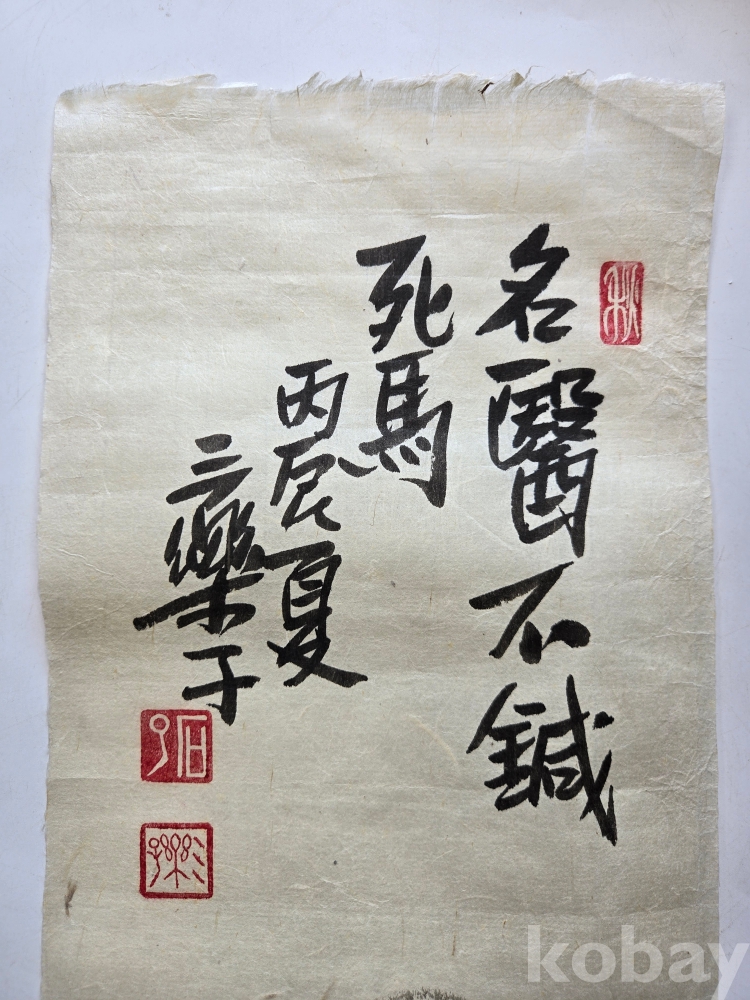 名醫不鍼
死馬
丙辰夏
三樂子
kobay